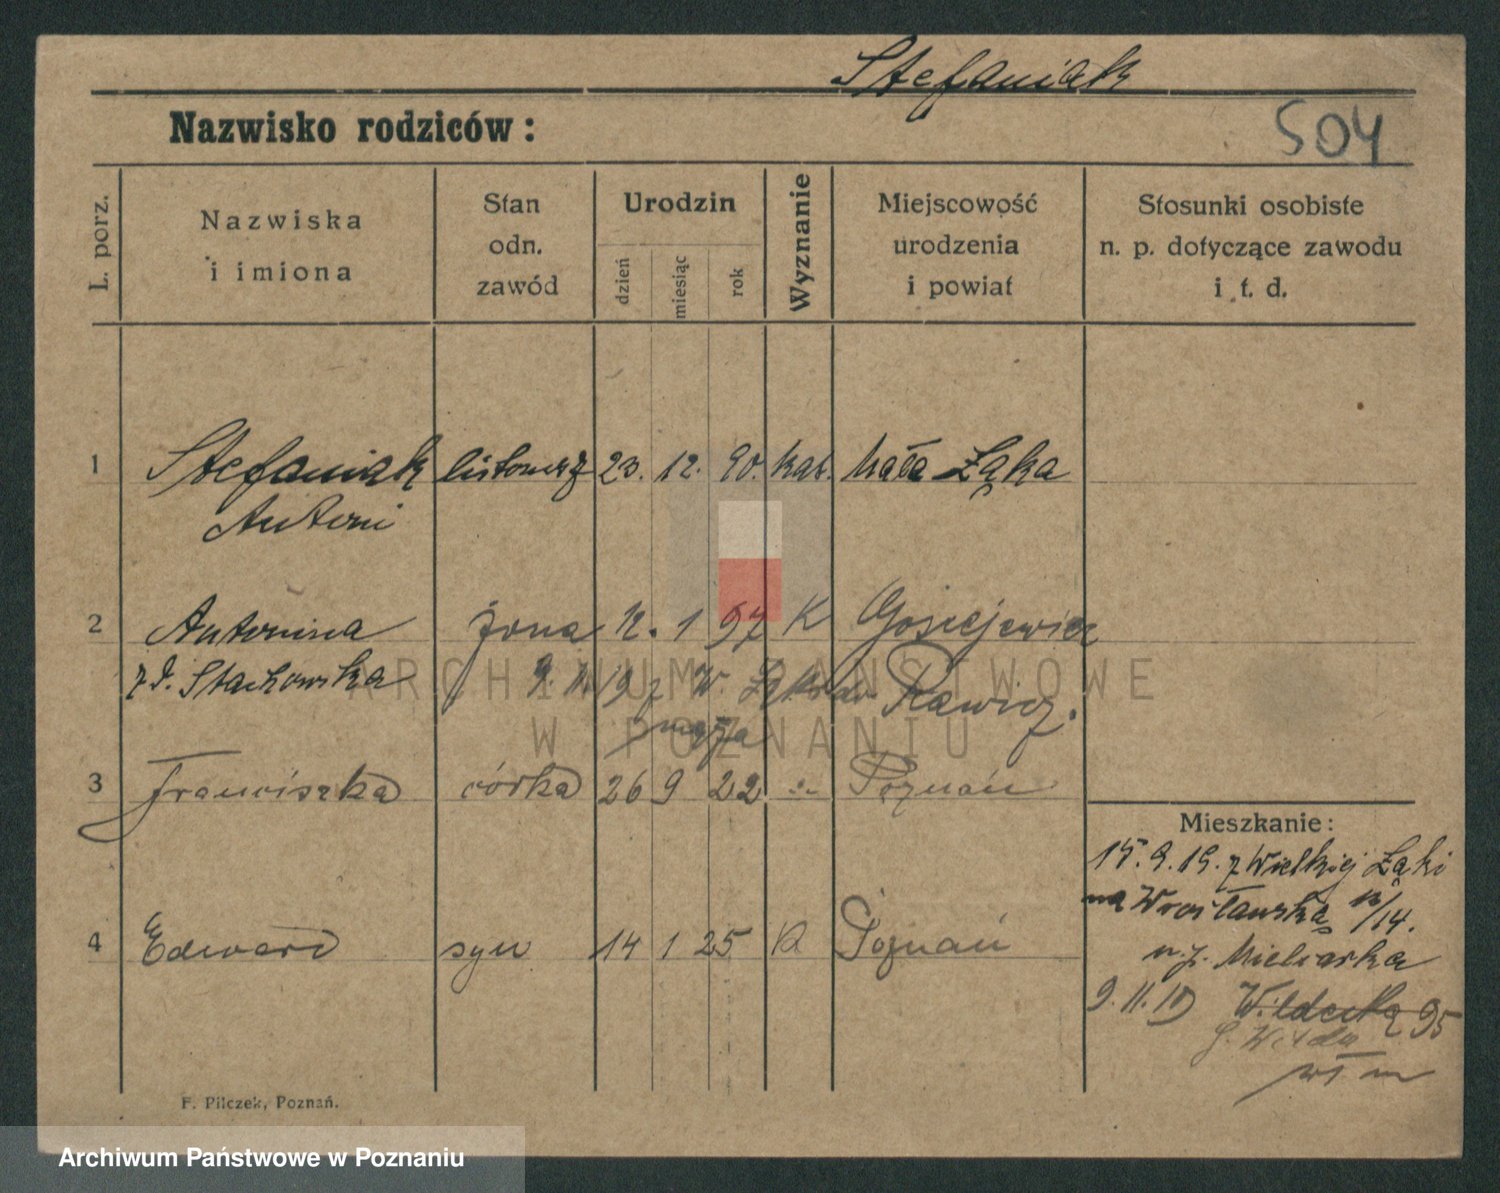 Stefaniak
Nazwisko rodziców:
504
L. porz.
Nazwiska
i imiona
Stan
odn.
zawód
Urodzin
dzień
miesiąc
rok
Wyznanie
Miejscowość
urodzenia
i powiat
Stosunki osobiste
n. p. dotyczące zawodu
i t. d.
1 Stefaniak listowy 23. 12. 90. kat. Mała Łąka
Antoni
2 Antonina żona 12. 1 97 K Gościejewice
z d. Stachowska 9. 11. 19 z W. Rawicz.
męża
3 Franciszka córka 26 9 22 Poznań
4 Edward syn 14 1 25 K Poznań
Mieszkanie:
15.9.19. z Wielkiej Łąki
na Wrocławską 13/14.
u p. Mielcarka
9.11.19 Wildecką 95
G. Wilda
F. Pilczek, Poznań.
ARCHIWUM PAŃSTWOWE
W POZNANIU
Archiwum Państwowe w Poznaniu